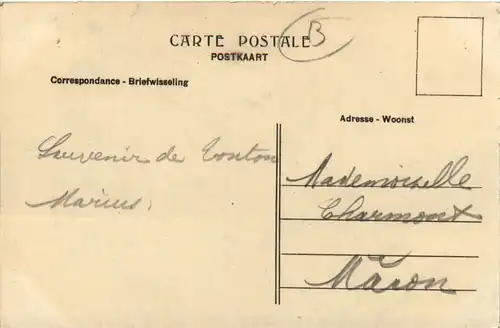 CARTE POSTALE
B
POSTKAART
Correspondance - Briefwisseling
Adresse - Woonst
Souvenir de tonton
Marius.
Mademoiselle
Charmont
Mâcon